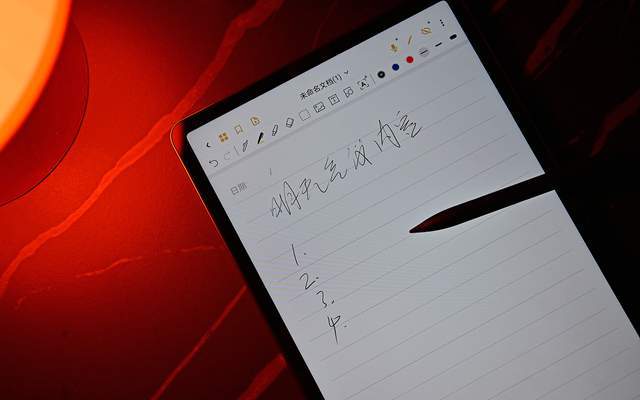 未命名文档(1)
日期
明天会议内容
1.
2.
3.
4.